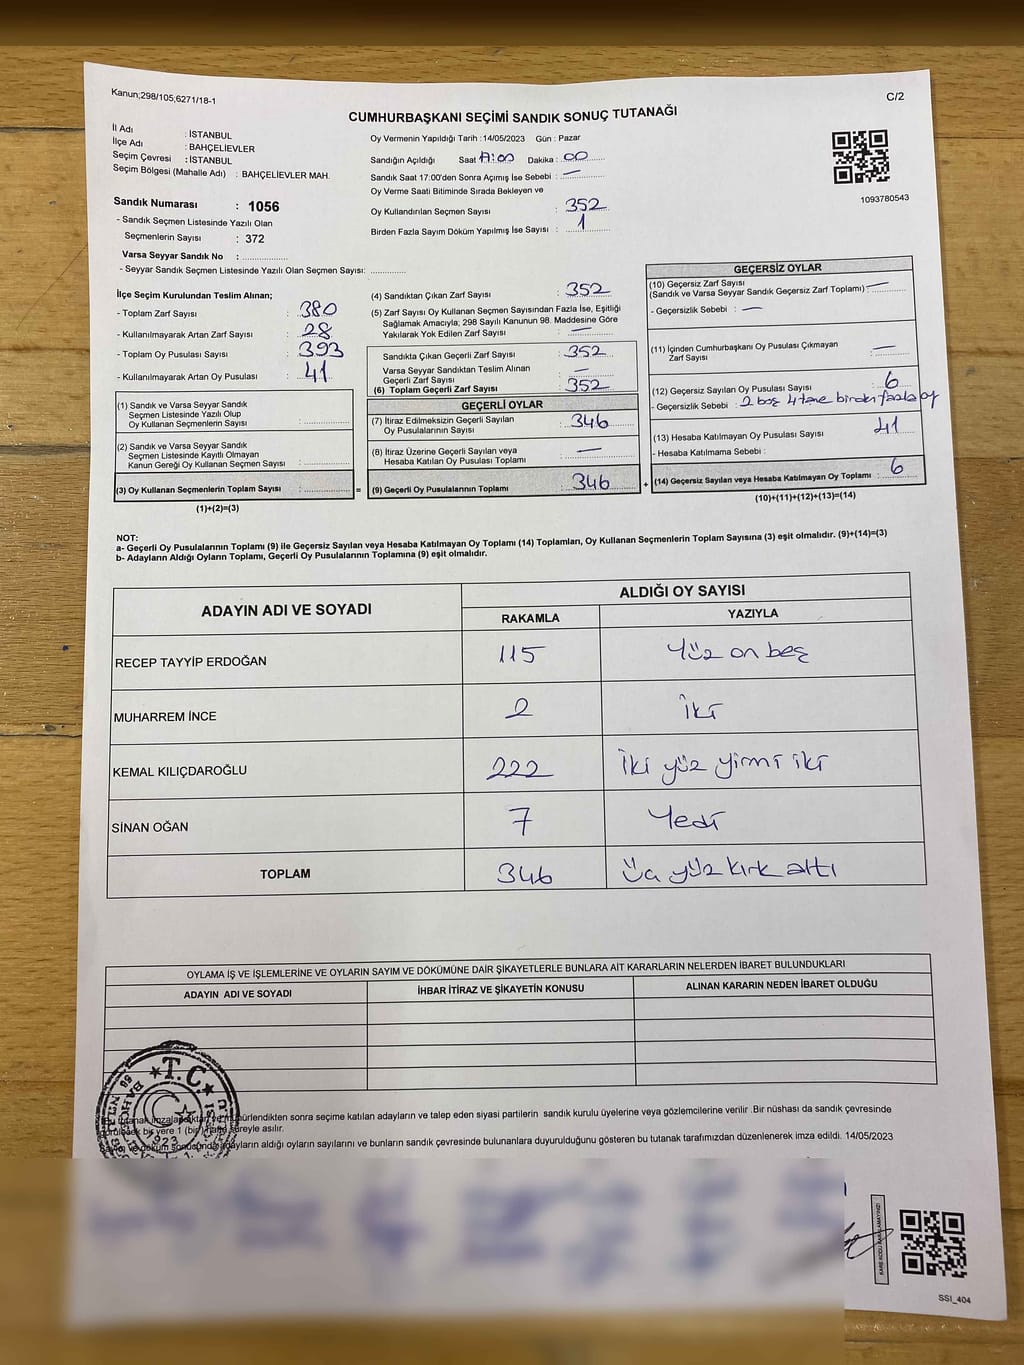 Kanun;298/105;6271/18-1
C/2
CUMHURBAŞKANI SEÇİMİ SANDIK SONUÇ TUTANAĞI
İl Adı : İSTANBUL
İlçe Adı : BAHÇELİEVLER
Seçim Çevresi : İSTANBUL
Seçim Bölgesi (Mahalle Adı) : BAHÇELİEVLER MAH.
Sandık Numarası : 1056
- Sandık Seçmen Listesinde Yazılı Olan
Seçmenlerin Sayısı : 372
Varsa Seyyar Sandık No : ................
- Seyyar Sandık Seçmen Listesinde Yazılı Olan Seçmen Sayısı: ............
Oy Vermenin Yapıldığı Tarih : 14/05/2023 Gün : Pazar
Sandığın Açıldığı Saat 17:00 Dakika : 00
Sandık Saat 17:00'den Sonra Açımış İse Sebebi : —
Oy Verme Saati Bitiminde Sırada Bekleyen ve
Oy Kullandırılan Seçmen Sayısı : 352
Birden Fazla Sayım Döküm Yapılmış İse Sayısı : 1
1093780543
İlçe Seçim Kurulundan Teslim Alınan;
- Toplam Zarf Sayısı : 380
- Kullanılmayarak Artan Zarf Sayısı : 28
- Toplam Oy Pusulası Sayısı : 393
- Kullanılmayarak Artan Oy Pusulası : 41
(1) Sandık ve Varsa Seyyar Sandık
Seçmen Listesinde Yazılı Olup
Oy Kullanan Seçmenlerin Sayısı : ................
(2) Sandık ve Varsa Seyyar Sandık
Seçmen Listesinde Kayıtlı Olmayan
Kanun Gereği Oy Kullanan Seçmen Sayısı : ................
(3) Oy Kullanan Seçmenlerin Toplam Sayısı : ................ =
(1)+(2)=(3)
(4) Sandıktan Çıkan Zarf Sayısı : 352
(5) Zarf Sayısı Oy Kullanan Seçmen Sayısından Fazla İse, Eşitliği
Sağlamak Amacıyla; 298 Sayılı Kanunun 98. Maddesine Göre
Yakılarak Yok Edilen Zarf Sayısı : —
Sandıkla Çıkan Geçerli Zarf Sayısı : 352
Varsa Seyyar Sandıktan Teslim Alınan
Geçerli Zarf Sayısı : —
(6) Toplam Geçerli Zarf Sayısı : 352
GEÇERLİ OYLAR
(7) İtiraz Edilmeksizin Geçerli Sayılan
Oy Pusulalarının Sayısı : 346
(8) İtiraz Üzerine Geçerli Sayılan veya
Hesaba Katılan Oy Pusulası Toplamı : —
(9) Geçerli Oy Pusulalarının Toplamı : 346 +
GEÇERSİZ OYLAR
(10) Geçersiz Zarf Sayısı
(Sandık ve Varsa Seyyar Sandık Geçersiz Zarf Toplamı) : —
- Geçersizlik Sebebi : —
(11) İçinden Cumhurbaşkanı Oy Pusulası Çıkmayan
Zarf Sayısı : —
(12) Geçersiz Sayılan Oy Pusulası Sayısı : 6
- Geçersizlik Sebebi : 2 boş 4 tane birden fazla oy
(13) Hesaba Katılmayan Oy Pusulası Sayısı : 41
- Hesaba Katılmama Sebebi :
(14) Geçersiz Sayılan veya Hesaba Katılmayan Oy Toplamı : 6
(10)+(11)+(12)+(13)=(14)
NOT:
a- Geçerli Oy Pusulalarının Toplamı (9) ile Geçersiz Sayılan veya Hesaba Katılmayan Oy Pusulası Toplamı (14) Toplamları, Oy Kullanan Seçmenlerin Toplam Sayısına (3) eşit olmalıdır. (9)+(14)=(3)
b- Adayların Aldığı Oyların Toplamı, Geçerli Oy Pusulalarının Toplamına (9) eşit olmalıdır.
ADAYIN ADI VE SOYADI
ALDIĞI OY SAYISI
RAKAMLA YAZIYLA
RECEP TAYYİP ERDOĞAN 115 Yüz on beş
MUHARREM İNCE 2 İki
KEMAL KILIÇDAROĞLU 222 İki yüz yirmi iki
SİNAN OĞAN 7 Yedi
TOPLAM 346 Üç yüz kırk altı
OYLAMA İŞ VE İŞLEMLERİNE VE OYLARIN SAYIM VE DÖKÜMÜNE DAİR ŞİKAYETLERLE BUNLARA AİT KARARLARIN NELERDEN İBARET BULUNDUKLARI
ADAYIN ADI VE SOYADI İHBAR İTİRAZ VE ŞİKAYETİN KONUSU ALINAN KARARIN NEDEN İBARET OLDUĞU
T.C.
923
Bu tutanak mühürlendikten sonra seçime katılan adayların ve talep eden siyasi partilerin sandık kurulu üyelerine veya gözlemcilerine verilir .Bir nüshası da sandık çevresinde
bir yere 1 (bir) süreyle asılır.
adayların aldığı oyların sayılarını ve bunların sandık çevresinde bulunanlara duyurulduğunu gösteren bu tutanak tarafımızdan düzenlenerek imza edildi. 14/05/2023
KARE KODU KARALAMAYINIZ!
SSI_404